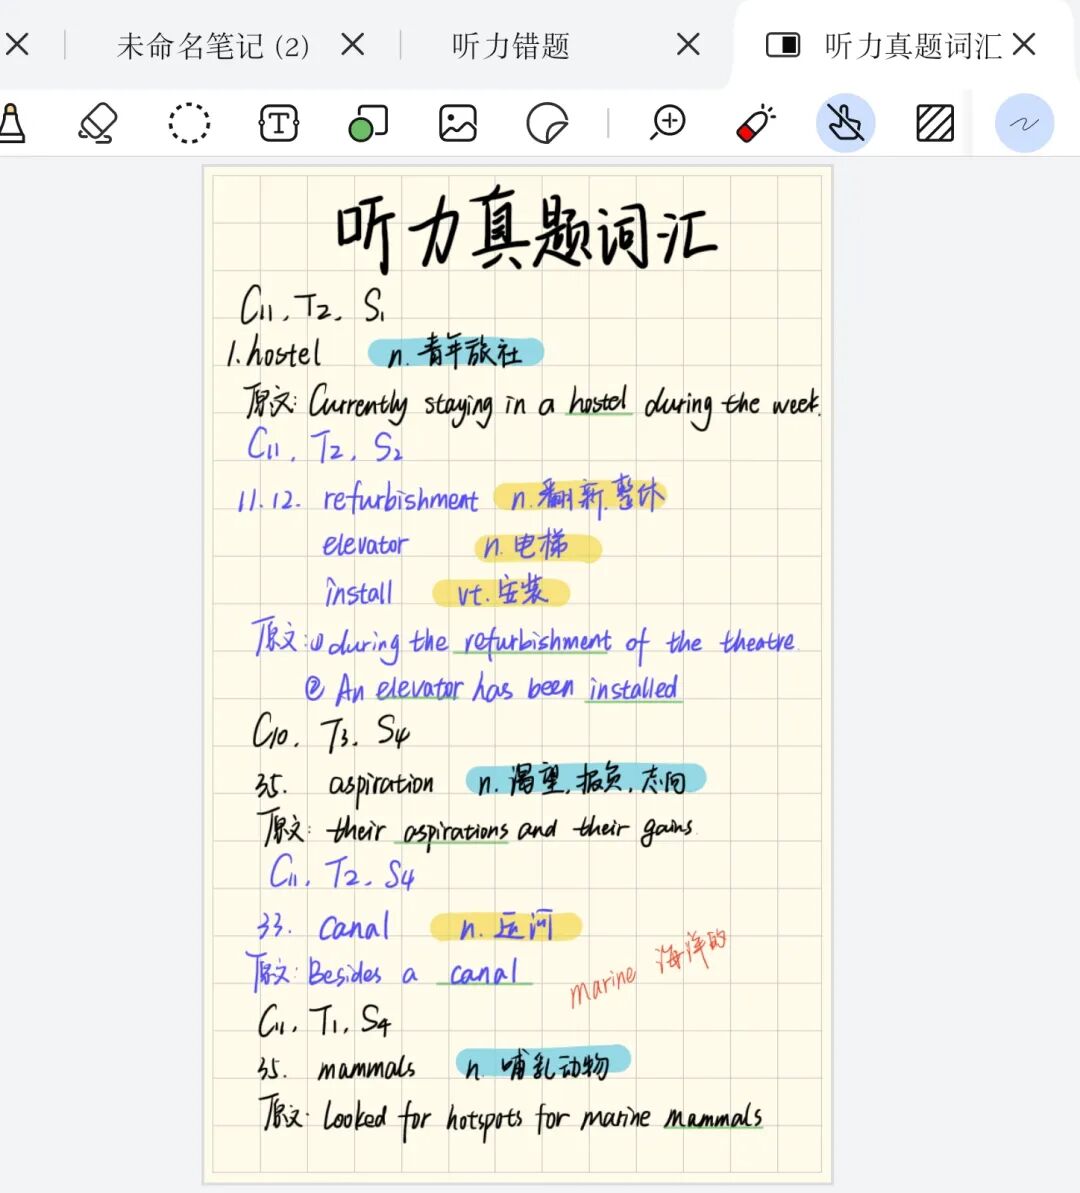 未命名笔记 (2) 听力错题 听力真题词汇
听力真题词汇
C11, T2, S1
1. hostel n. 青年旅社
原文: Currently staying in a hostel during the week.
C11, T2, S2
11.12. refurbishment n. 翻新.整修
elevator n. 电梯
install vt. 安装
原文: ① during the refurbishment of the theatre.
② An elevator has been installed
C10, T3, S4
35. aspiration n. 渴望, 报负, 志向
原文: their aspirations and their gains.
C11, T2, S4
33. canal n. 运河
原文: Besides a canal
marine 海洋的
C11, T1, S4
35. mammals n. 哺乳动物
原文: Looked for hotspots for marine mammals